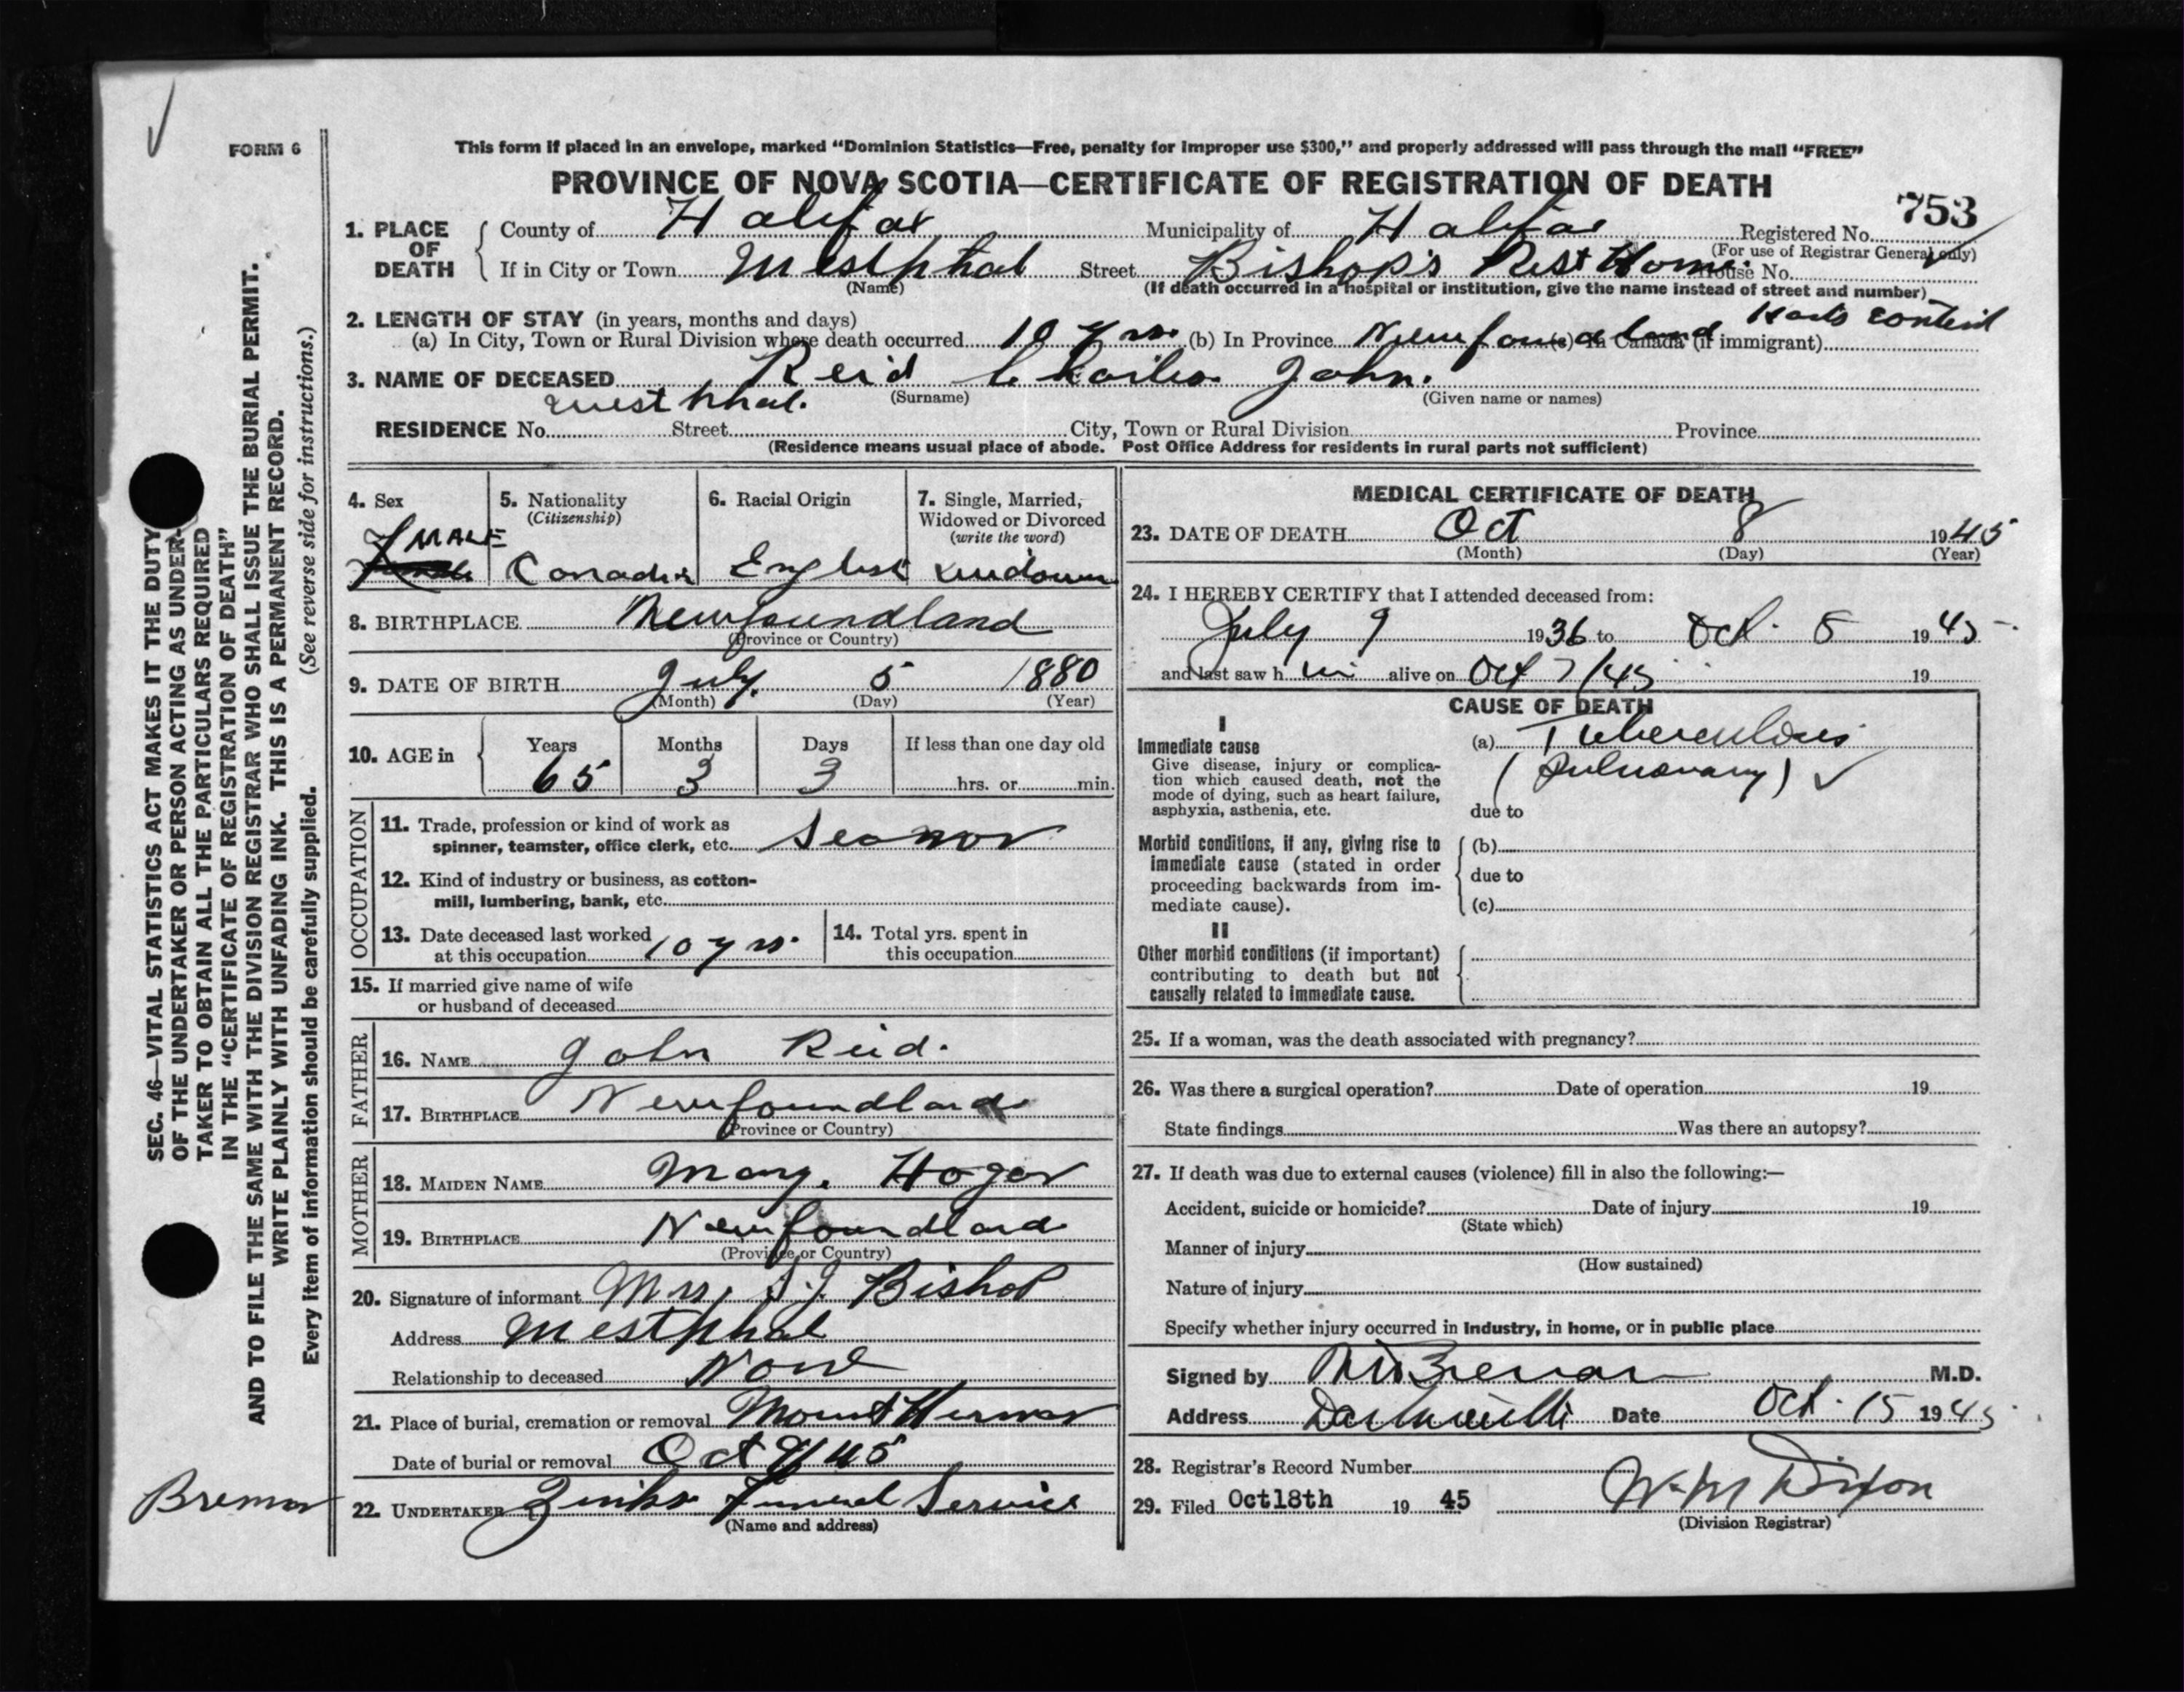 FORM 6
This form if placed in an envelope, marked "Dominion Statistics—Free, penalty for improper use $300," and properly addressed will pass through the mail "FREE"
PROVINCE OF NOVA SCOTIA—CERTIFICATE OF REGISTRATION OF DEATH
753
1. PLACE OF DEATH County of Halifax Municipality of Halifax Registered No.
(For use of Registrar General only)
If in City or Town Westphal Street Bishop's Rest Home House No.
(Name) (If death occurred in a hospital or institution, give the name instead of street and number)
2. LENGTH OF STAY (in years, months and days) Harts content
(a) In City, Town or Rural Division where death occurred 10 yrs. (b) In Province Newfoundland (c) In Canada (if immigrant)
3. NAME OF DECEASED Reid Charles John.
(Surname) (Given name or names)
Westphal.
RESIDENCE No. Street City, Town or Rural Division Province
(Residence means usual place of abode. Post Office Address for residents in rural parts not sufficient)
4. Sex MALE
5. Nationality (Citizenship) Canadian
6. Racial Origin English
7. Single, Married, Widowed or Divorced (write the word)
8. BIRTHPLACE Newfoundland
(Province or Country)
9. DATE OF BIRTH July 5 1880
(Month) (Day) (Year)
10. AGE in Years Months Days If less than one day old
65 3 3 hrs. or min.
OCCUPATION
11. Trade, profession or kind of work as
spinner, teamster, office clerk, etc. Seaman
12. Kind of industry or business, as cotton-
mill, lumbering, bank, etc.
13. Date deceased last worked at this occupation 10 yrs.
14. Total yrs. spent in this occupation
15. If married give name of wife
or husband of deceased
FATHER
16. NAME John Reid.
17. BIRTHPLACE Newfoundland
(Province or Country)
MOTHER
18. MAIDEN NAME Mary.
19. BIRTHPLACE Newfoundland
(Province or Country)
20. Signature of informant Mrs. S. J. Bishop
Address Westphal
Relationship to deceased None
21. Place of burial, cremation or removal Mount Herman
Date of burial or removal Oct 9/45
22. UNDERTAKER Zinks Funeral Service
(Name and address)
MEDICAL CERTIFICATE OF DEATH
23. DATE OF DEATH Oct 8 1945
(Month) (Day) (Year)
24. I HEREBY CERTIFY that I attended deceased from:
July 9 1936 to Oct. 8 1945
and last saw him alive on Oct 7/45 19
CAUSE OF DEATH
I
Immediate cause
Give disease, injury or complica-
tion which caused death, not the
mode of dying, such as heart failure,
asphyxia, asthenia, etc.
(a) Tuberculosis
(Pulmonary)
due to
Morbid conditions, if any, giving rise to
immediate cause (stated in order
proceeding backwards from im-
mediate cause).
(b)
due to
(c)
II
Other morbid conditions (if important)
contributing to death but not
causally related to immediate cause.
25. If a woman, was the death associated with pregnancy?
26. Was there a surgical operation? Date of operation 19
State findings Was there an autopsy?
27. If death was due to external causes (violence) fill in also the following:—
Accident, suicide or homicide? Date of injury 19
(State which)
Manner of injury
(How sustained)
Nature of injury
Specify whether injury occurred in Industry, in home, or in public place
Signed by M.D.
Address Date Oct. 15 1945
28. Registrar's Record Number
29. Filed Oct18th 19 45 W. M Dixon
(Division Registrar)
SEC. 46—VITAL STATISTICS ACT MAKES IT THE DUTY
OF THE UNDERTAKER OR PERSON ACTING AS UNDER-
TAKER TO OBTAIN ALL THE PARTICULARS REQUIRED
IN THE "CERTIFICATE OF REGISTRATION OF DEATH"
AND TO FILE THE SAME WITH THE DIVISION REGISTRAR WHO SHALL ISSUE THE BURIAL PERMIT.
WRITE PLAINLY WITH UNFADING INK. THIS IS A PERMANENT RECORD.
Every item of information should be carefully supplied. (See reverse side for instructions.)